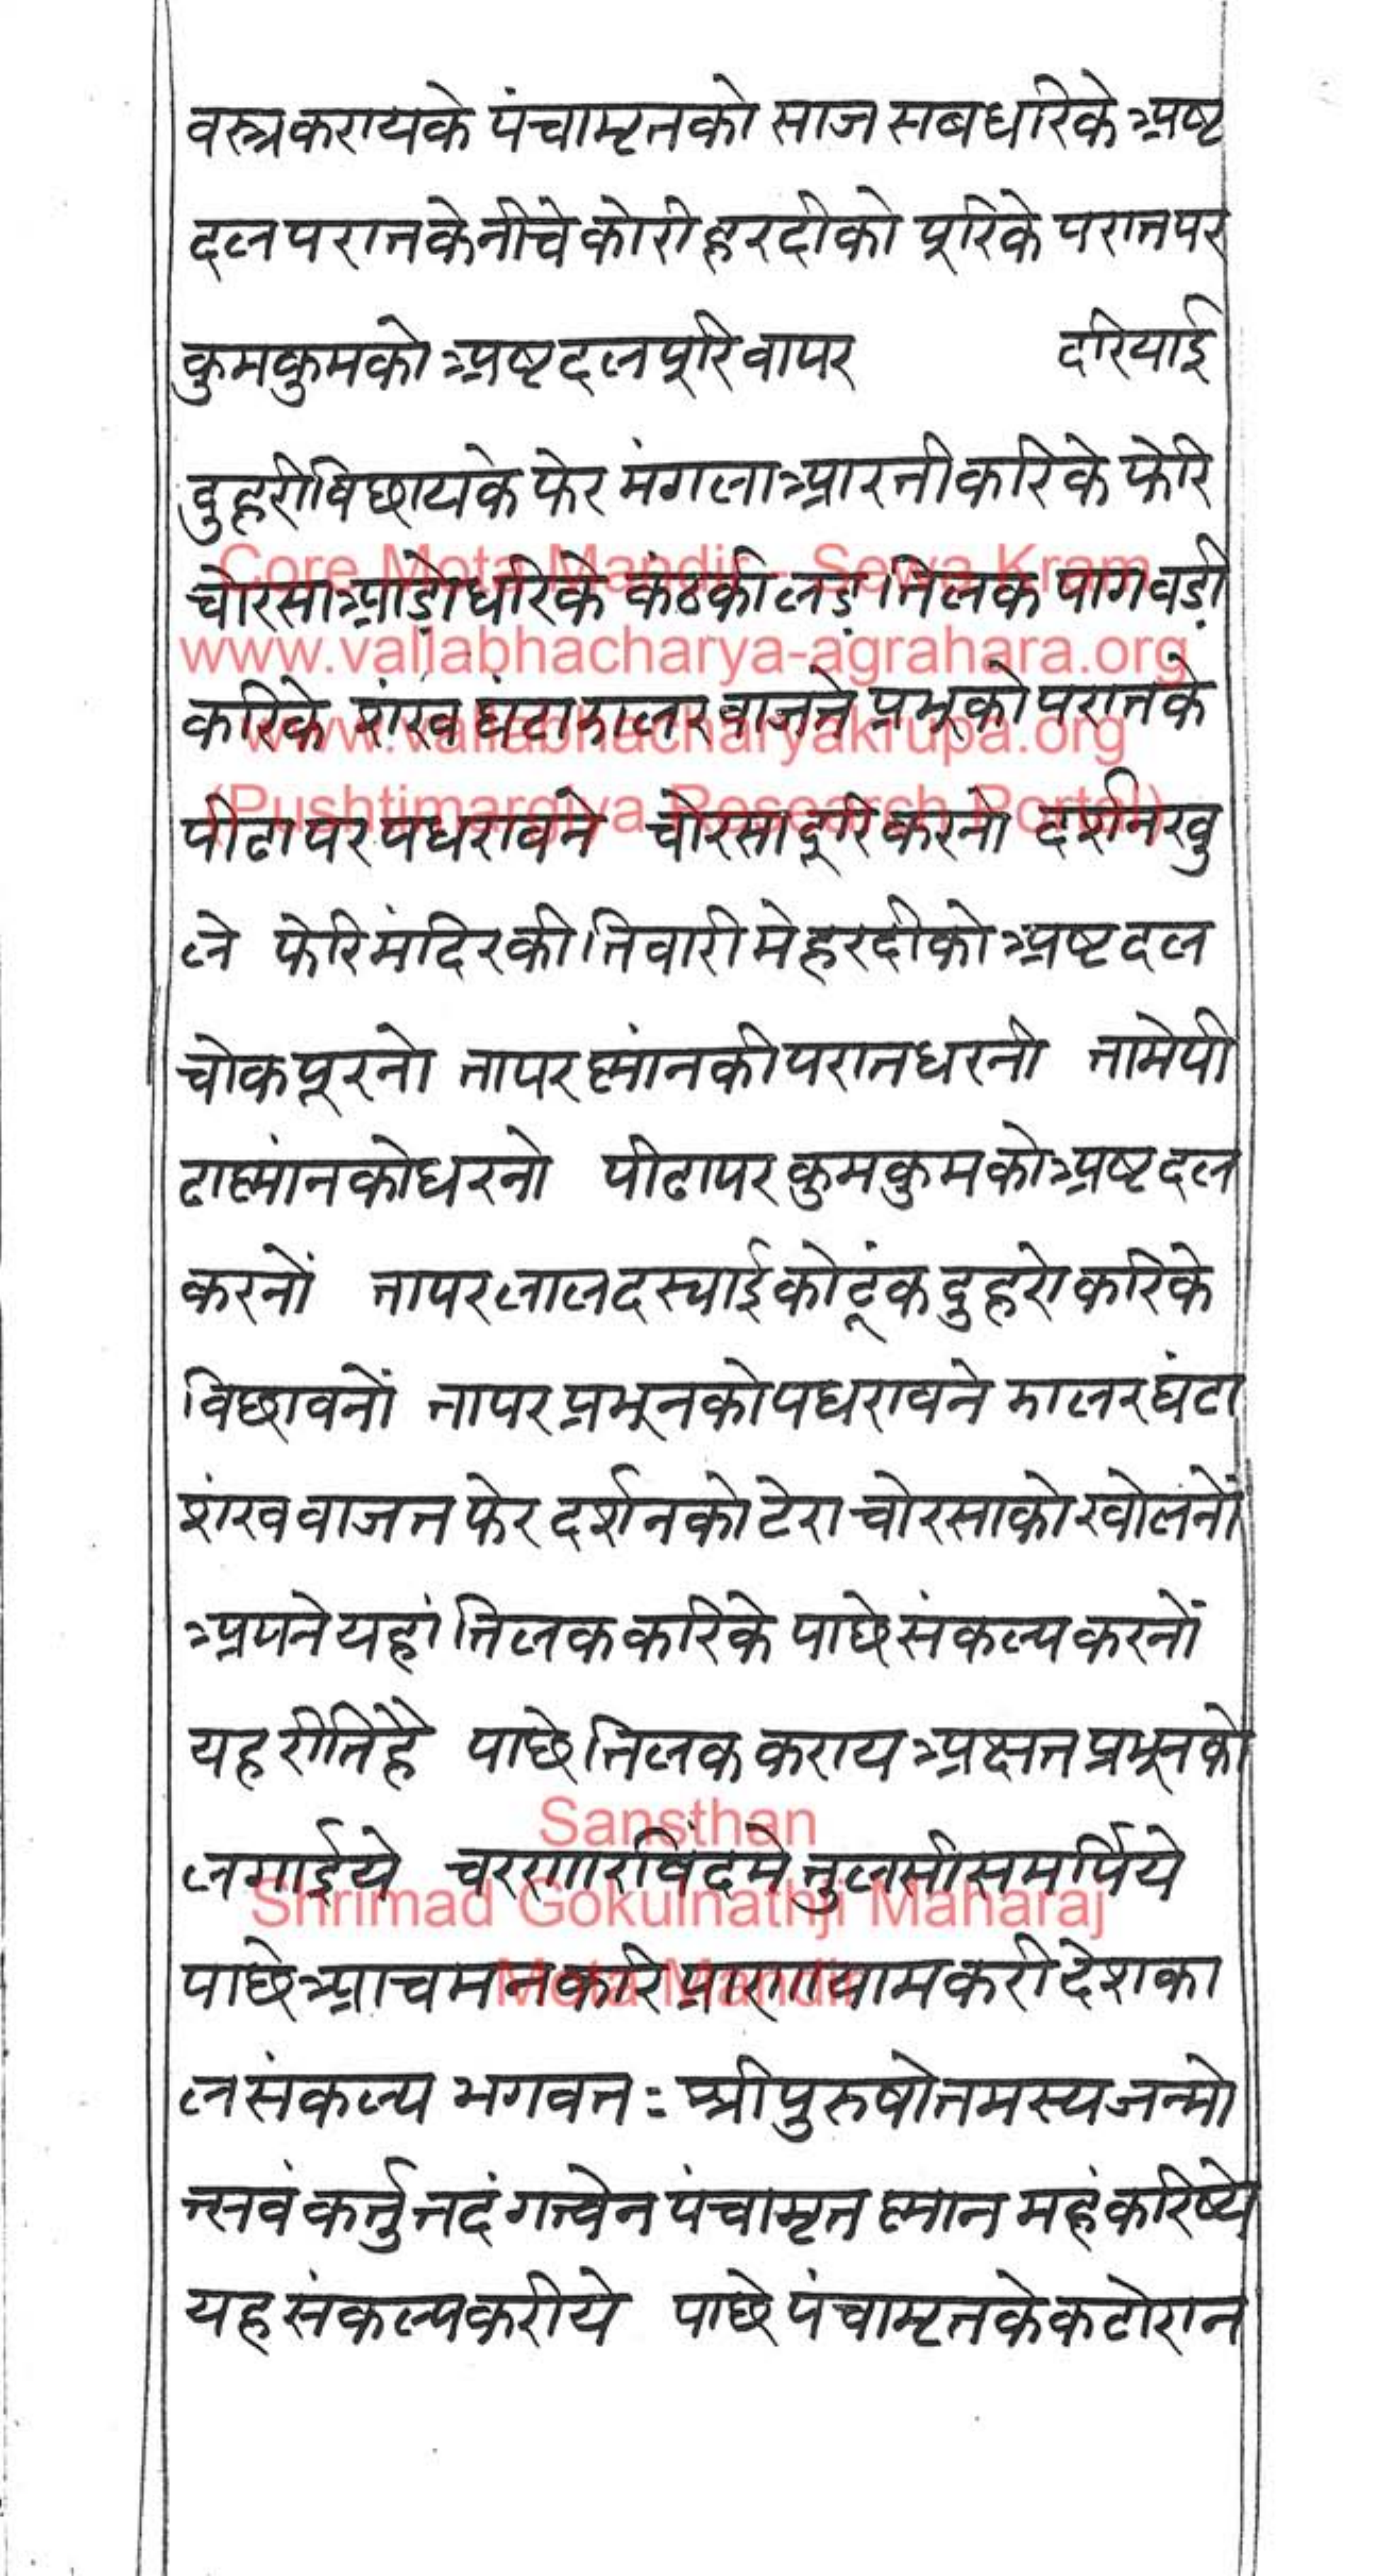 वस्त्र करायके पंचामृतको साज सब धरिके अष्ट
दल परातके नीचे कोरी हरदीको पूरिके परातपर
कुमकुमको अष्टदल पूरि वापर दरियाई
दुहरी विछायके फेर मंगला आरती करिके फेरि
Core Mota Mandir - Sewa Kram
चोरसा आडो धरिके कंठकी लड़ तिलक पाग बड़ी
www.vallabhacharya-agrahara.org
करिके शंख घंटा झालर वाजते प्रभूको परातके
www.vallabhacharyakrupa.org
(Pushtimargiya Research Portal)
पीढा पर पधरावने चोरसा दूरि करनो दर्शन खु
ले फेरि मंदिरकी तिवारी मे हरदीको अष्टदल
चोक पूरनो तापर स्नांनकी परात धरनी तामे पी
ढा स्नांनको धरनो पीढापर कुमकुमको अष्टदल
करनों तापर लाल दरयाईको टूंक दुहरो करिके
विछावनों तापर प्रभूनको पधरावने झालर घंटा
शंख वाजत फेर दर्शनको टेरा चोरसाको खोलनों
अपने यहां तिलक करिके पाछे संकल्प करनों
यह रीति है पाछे तिलक कराय अक्षत प्रभूनको
Sansthan
लगाईये चरणारविंदमे तुलसी समर्पिये
Shrimad Gokulnathji Maharaj
पाछे आचमन करि प्राणायाम करी देशका
Mota Mandir
ल संकल्प भगवतः श्रीपुरुषोतमस्य जन्मो
त्सवं कर्त्तु तदंगत्वेन पंचामृत स्नान महं करिष्ये
यह संकल्प करीये पाछे पंचामृतके कटोरान